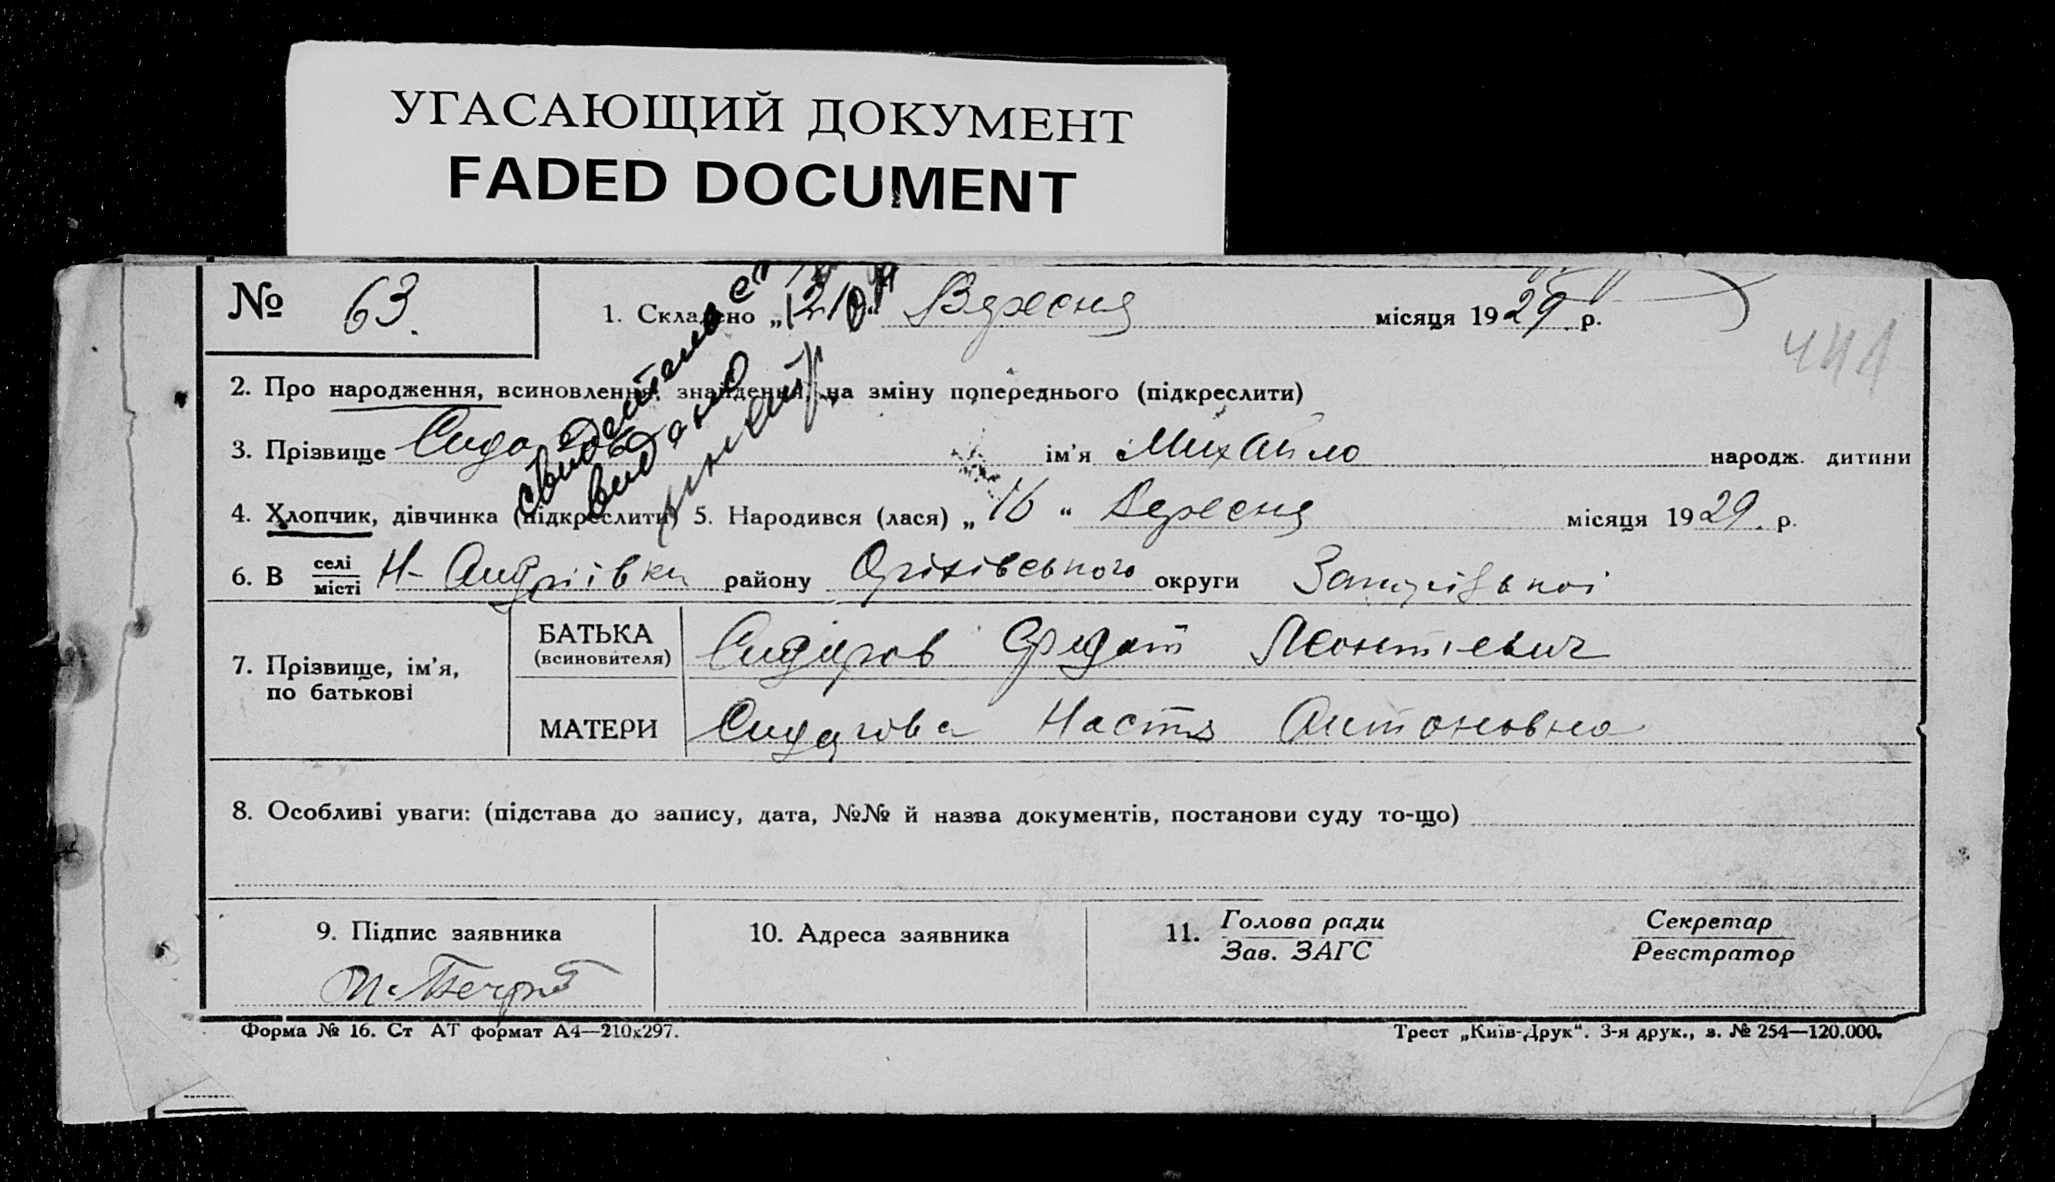 УГАСАЮЩИЙ ДОКУМЕНТ
FADED DOCUMENT
№ 63.
1. Складено „ “ Вересня місяця 1929 р.
441
2. Про народження, всиновлення, знайдення, на зміну попереднього (підкреслити)
3. Прізвище ім'я Михайло народж. дитини
4. Хлопчик, дівчинка (підкреслити) 5. Народився (лася) „16“ Вересня місяця 1929 р.
свидетельство
видано
6. В селі
місті Н-Андріівки району Оріхівського округи Запорізькоі
7. Прізвище, ім'я,
по батькові
БАТЬКА
(всиновителя) Сидоров Федот Леонтіевич
МАТЕРИ Сидорова Настя Антоновна
8. Особливі уваги: (підстава до запису, дата, №№ й назва документів, постанови суду то-що)
9. Підпис заявника
10. Адреса заявника
11. Голова ради
Зав. ЗАГС
Секретар
Реєстратор
Форма № 16. Ст АТ формат А4—210х297.
Трест „Київ-Друк“. 3-я друк., з. № 254—120.000.